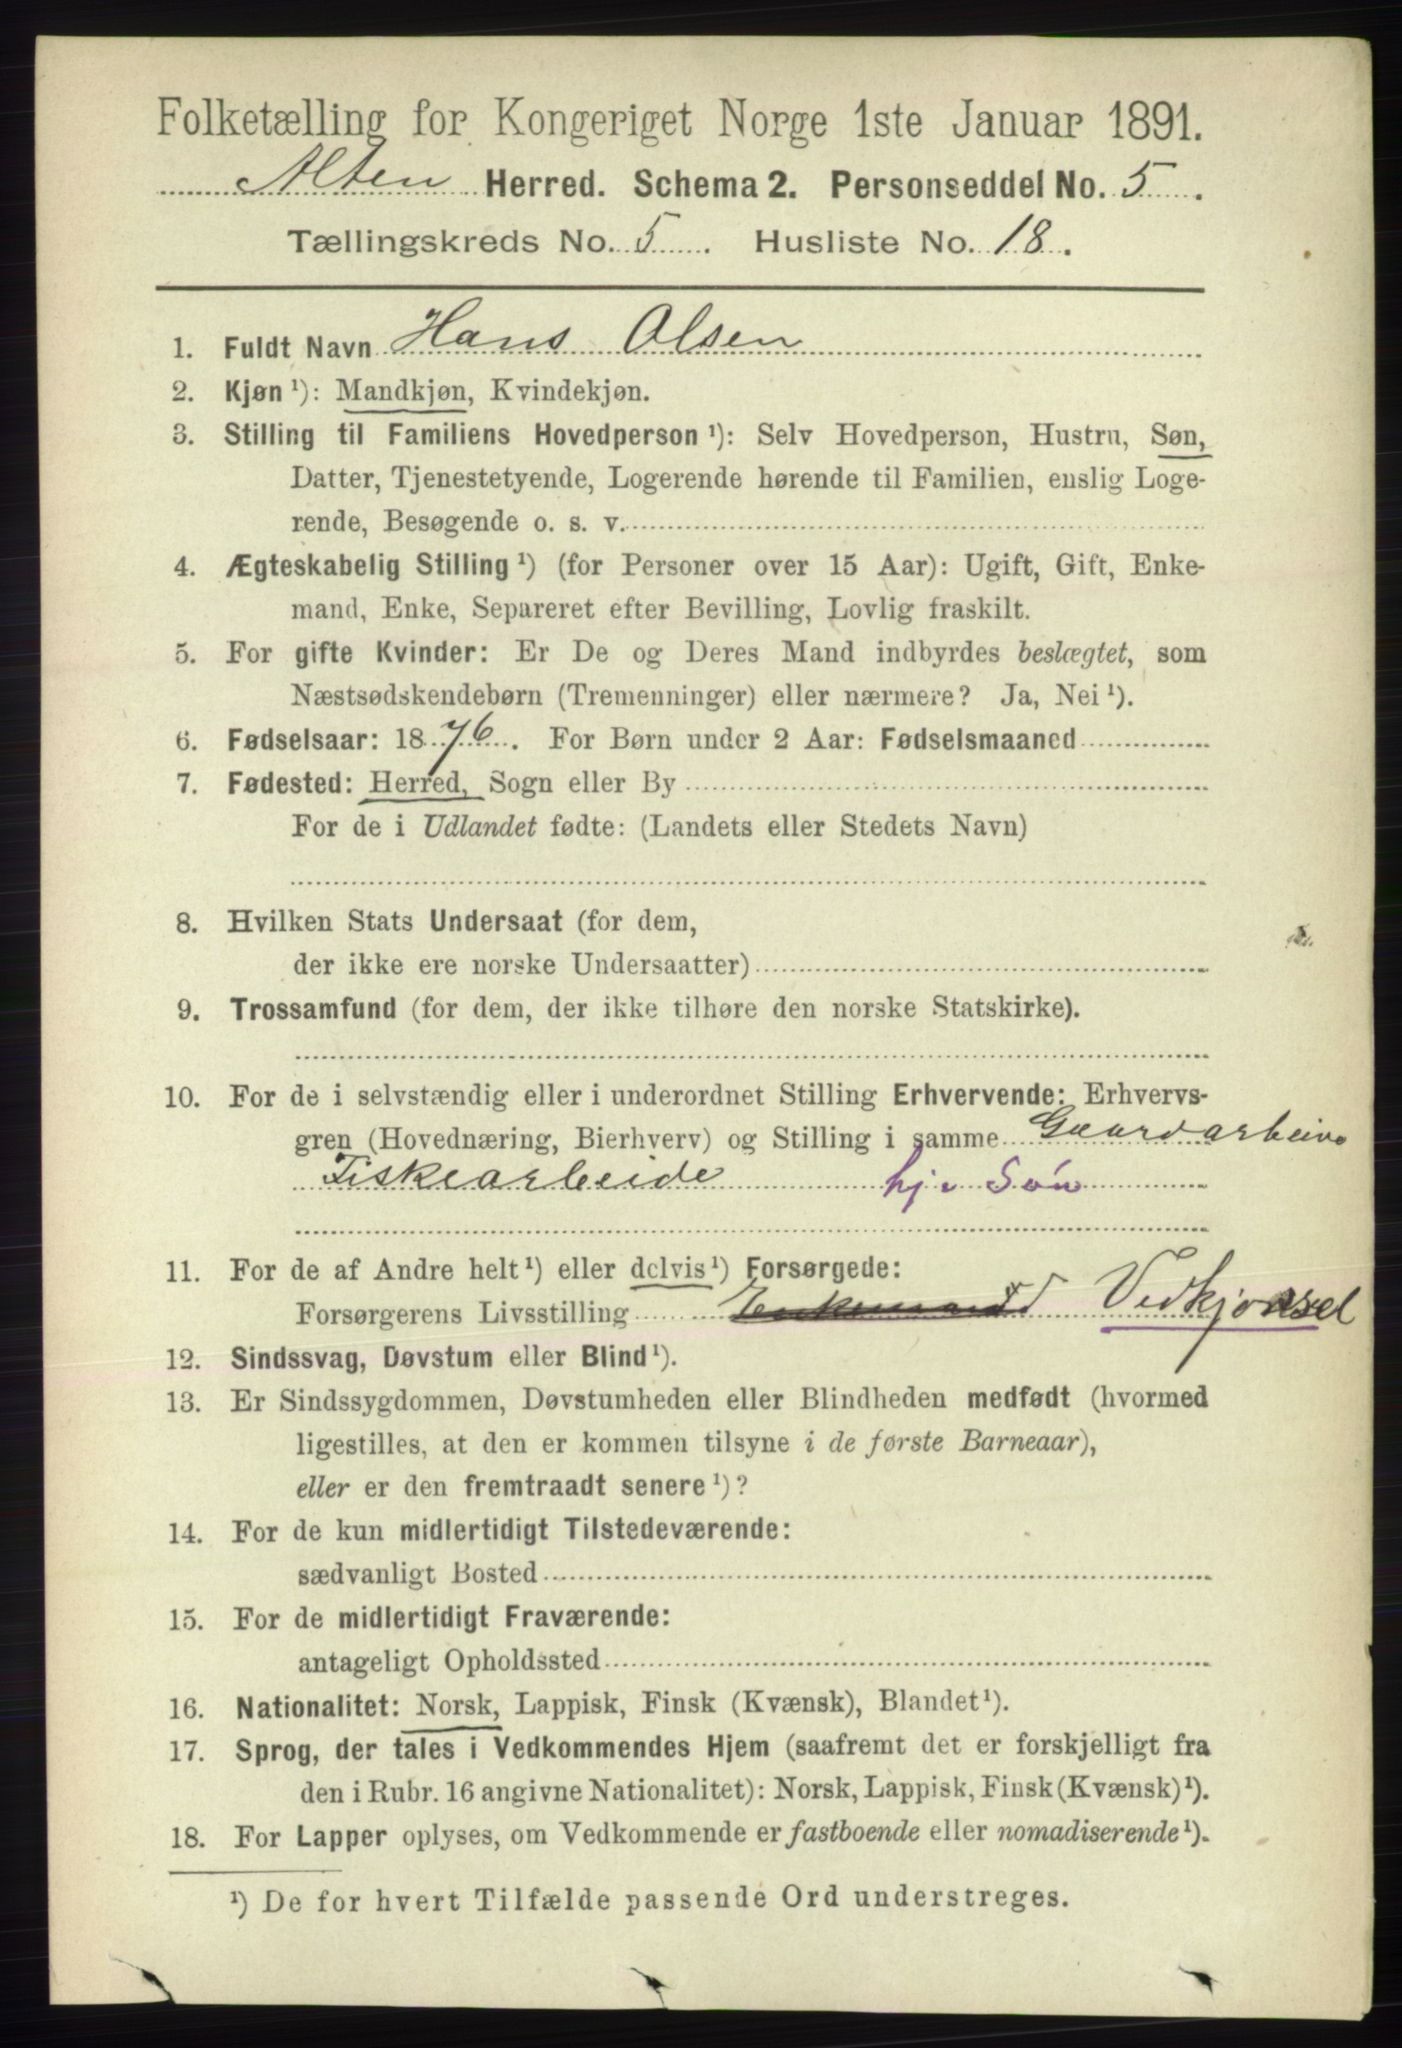 Folketælling for Kongeriget Norge 1ste Januar 1891.
Alten Herred. Schema 2. Personseddel No. 5.
Tællingskreds No. 5. Husliste No. 18.
1. Fuldt Navn Hans Olsen
2. Kjøn ¹): Mandkjøn, Kvindekjøn.
3. Stilling til Familiens Hovedperson ¹): Selv Hovedperson, Hustru, Søn,
Datter, Tjenestetyende, Logerende hørende til Familien, enslig Loge-
rende, Besøgende o. s. v.
4. Ægteskabelig Stilling ¹) (for Personer over 15 Aar): Ugift, Gift, Enke-
mand, Enke, Separeret efter Bevilling, Lovlig fraskilt.
5. For gifte Kvinder: Er De og Deres Mand indbyrdes beslægtet, som
Næstsødskendebørn (Tremenninger) eller nærmere? Ja, Nei ¹).
6. Fødselsaar: 1876. For Børn under 2 Aar: Fødselsmaaned
7. Fødested: Herred, Sogn eller By
For de i Udlandet fødte: (Landets eller Stedets Navn)
8. Hvilken Stats Undersaat (for dem,
der ikke ere norske Undersaatter)
9. Trossamfund (for dem, der ikke tilhøre den norske Statskirke).
10. For de i selvstændig eller i underordnet Stilling Erhvervende: Erhvervs-
gren (Hovednæring, Bierhverv) og Stilling i samme Gaardarbeide
Fiskearbeide hj. Søn
11. For de af Andre helt ¹) eller delvis ¹) Forsørgede:
Forsørgerens Livsstilling Enkemand Vedkjørsel
12. Sindssvag, Døvstum eller Blind ¹).
13. Er Sindssygdommen, Døvstumheden eller Blindheden medfødt (hvormed
ligestilles, at den er kommen tilsyne i de første Barneaar),
eller er den fremtraadt senere ¹)?
14. For de kun midlertidigt Tilstedeværende:
sædvanligt Bosted
15. For de midlertidigt Fraværende:
antageligt Opholdssted
16. Nationalitet: Norsk, Lappisk, Finsk (Kvænsk), Blandet ¹).
17. Sprog, der tales i Vedkommendes Hjem (saafremt det er forskjelligt fra
den i Rubr. 16 angivne Nationalitet): Norsk, Lappisk, Finsk (Kvænsk) ¹).
18. For Lapper oplyses, om Vedkommende er fastboende eller nomadiserende ¹).
¹) De for hvert Tilfælde passende Ord understreges.